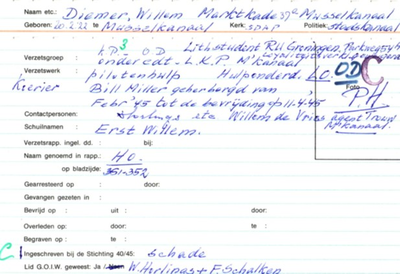 Naam etc.: Diemer, Willem Marktkade 37a Musselkanaal
Geboren: 10.2.22 te Musselkanaal Kerk: Politiek:
LKP OD Lith student RU Groningen,
Verzetsgroep : onderedt - L.K.P. M'kanaal
Verzetswerk : pilotenhulp Hulpenderd. LO. OD C
Koerier Bill Miller geherbergd van Foto
Febr '45 tot de bevrijding op 11-4-45 PH
Contactpersonen: etc Willem de Vries agent Trouw
Schuilnaam : Erst Willem. M'kanaal.
Verzetsrapp. ingel. dd. : bij:
Naam genoemd in rapp.: HO.
op bladzijde: 351-352
Gearresteerd op : door:
Gevangen gezeten in :
Bevrijd op : uit : door:
Overleden op: door: te :
Begraven op : te :
C Ingeschreven bij de Stichting 40/45: schade
Lid G.O.I.W. geweest: Ja / Neen W. Horlings + F. Schalken